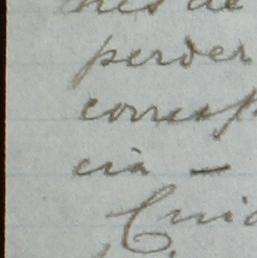 de
perder
corresp
cia —